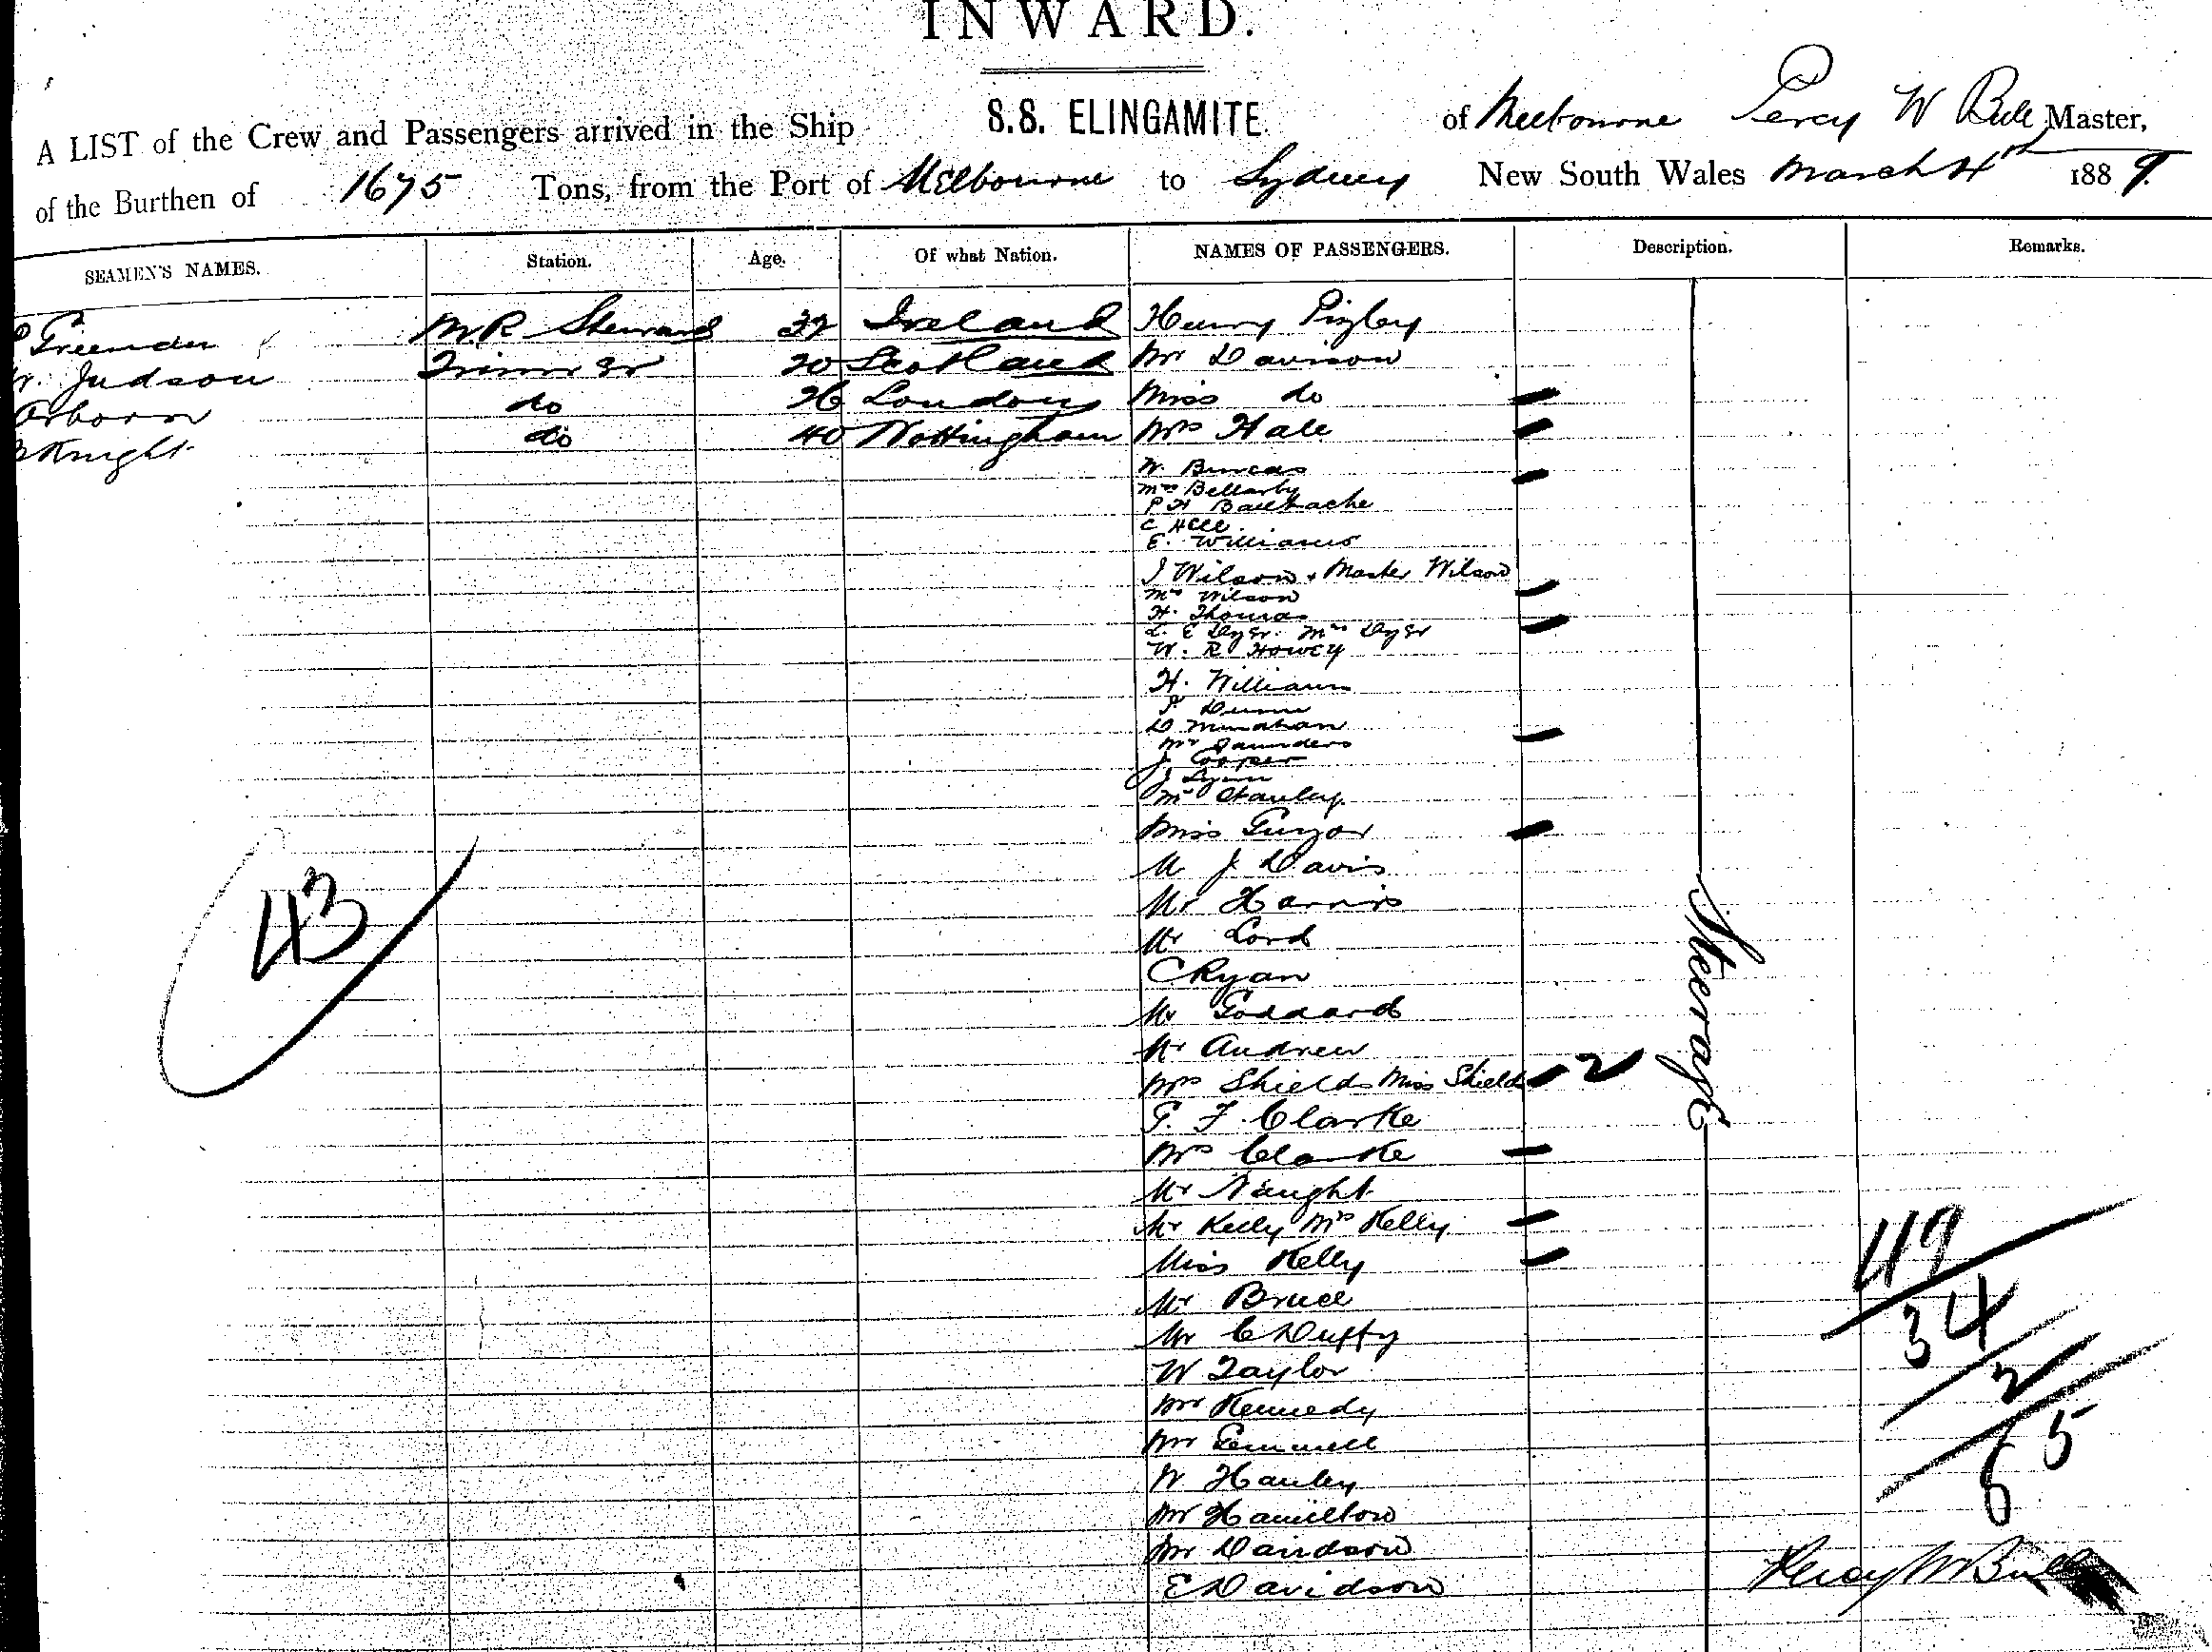 INWARD.
A LIST of the Crew and Passengers arrived in the Ship S.S. ELINGAMITE of Melbourne Percy W Bull Master,
of the Burthen of 1675 Tons, from the Port of Melbourne to Sydney New South Wales March 4th 1889.
SEAMEN'S NAMES. Station. Age. Of what Nation. NAMES OF PASSENGERS. Description. Remarks.
M.R. Steward 32 Ireland Henry Pigley
Judson Trimmer 20 Scotland Mr Davison
Osborn do 26 London Miss do
Knight do 40 Nottingham Mrs Hale
W.
Mrs Bellarby
P H Bailhache
C Hill
E. Williams
J Wilson + Master Wilson
Mrs Wilson
H. Thomas
L. E Dyer. Mrs Dyer
W. R Howey
H. Williams
P Dunn
D Minahan
Mr Saunders
J Cooper
J Lynn
Mr Stanley
Miss
M J Davis
Mr Harris
Mr Lord
C Ryan
Mr Goddard
Mr Andrew
Mrs Shields Miss Shields 2
G. F. Clarke
Mrs Clarke
Mr Naught
Mr Kelly Mrs Kelly
Miss Kelly
Mr Bruce
Mr C Duffy
W Taylor
Mr Kennedy
Mr Gemmell
W Hanley
Mr Hamilton
Mr Davidson
E Davidson
Steerage
43
49
34
2
65
Percy W Bull